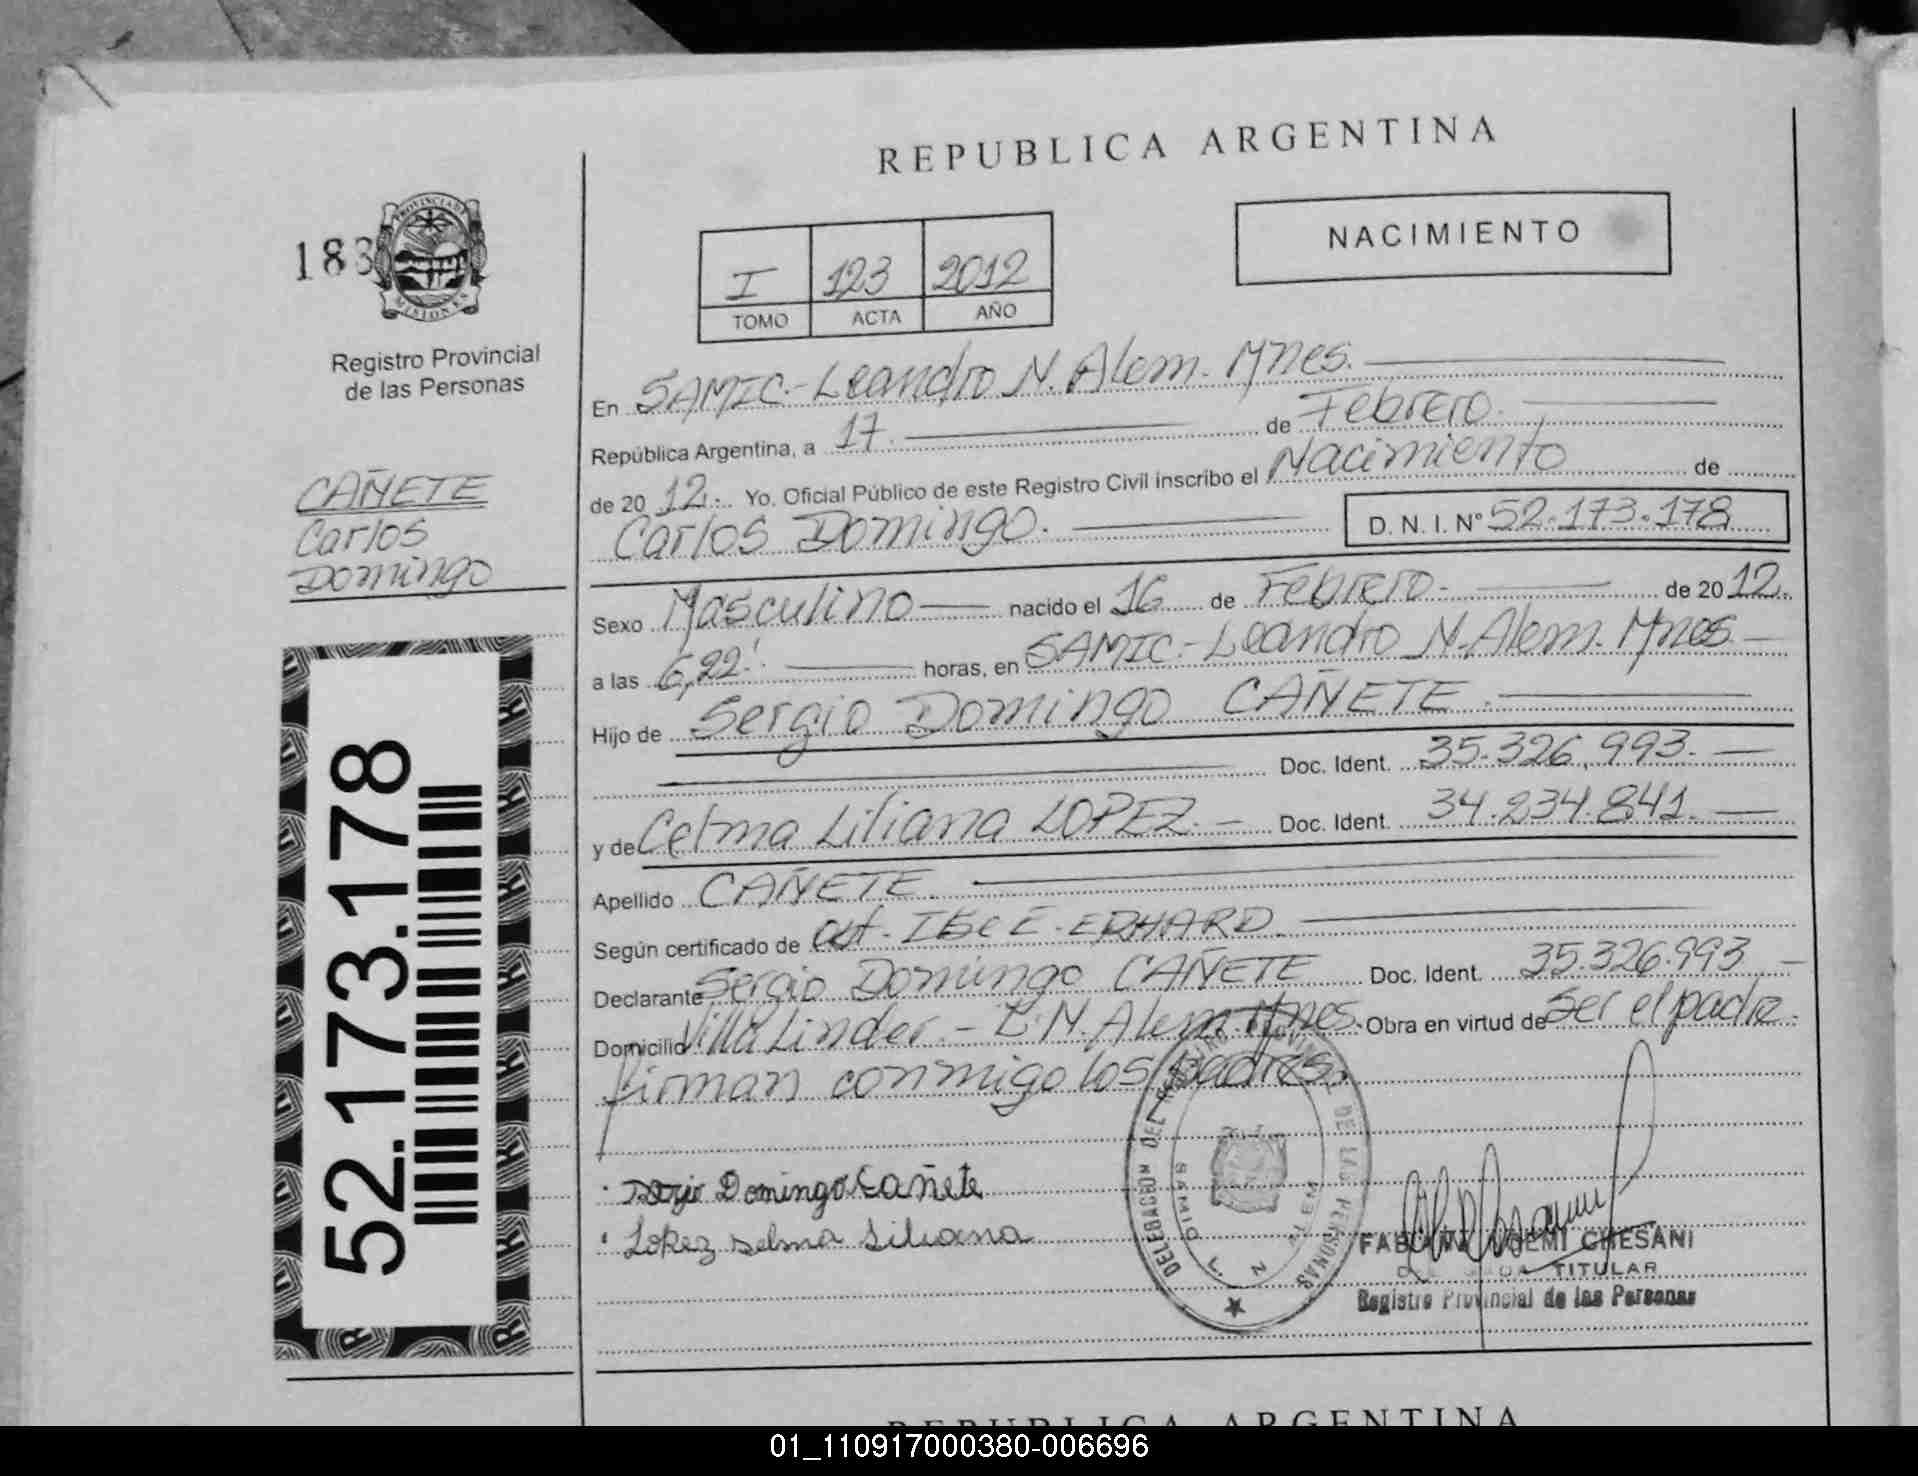 REPUBLICA ARGENTINA
183
PROVINCIA DE
MISIONES
Registro Provincial
de las Personas
I 123 2012
TOMO ACTA AÑO
NACIMIENTO
CAÑETE
Carlos
Domingo
52.173.178
En SAMIC.-Leandro N. Alem. Mnes.
República Argentina, a 17. de Febrero.
de 20 12.- Yo. Oficial Público de este Registro Civil inscribo el Nacimiento de
Carlos Domingo. D. N. I. Nº 52.173.178
Sexo Masculino nacido el 16 de Febrero. de 20 12.
a las 6,22'. horas, en SAMIC.-Leandro N. Alem. Mnes
Hijo de Sergio Domingo CAÑETE.
Doc. Ident. 35.326.993.
y de Celma Liliana LOPEZ. Doc. Ident. 34.234.841.
Apellido CAÑETE.
Según certificado de Ilse E. ERHARD.
Declarante Sergio Domingo CAÑETE Doc. Ident. 35.326.993
Domicilio Villa Linder.- L.N. Alem. Mnes. Obra en virtud de ser el padre.
Firman conmigo los padres.
Domingo Cañete
Lopez selma Liliana
DELEGACION DEL REGISTRO PROVINCIAL DE LAS PERSONAS
SAMIC L. N. ALEM
FABIANA NOEMI CHESANI
DELEGADA TITULAR
Registro Provincial de las Personas
REPUBLICA ARGENTINA
01_110917000380-006696